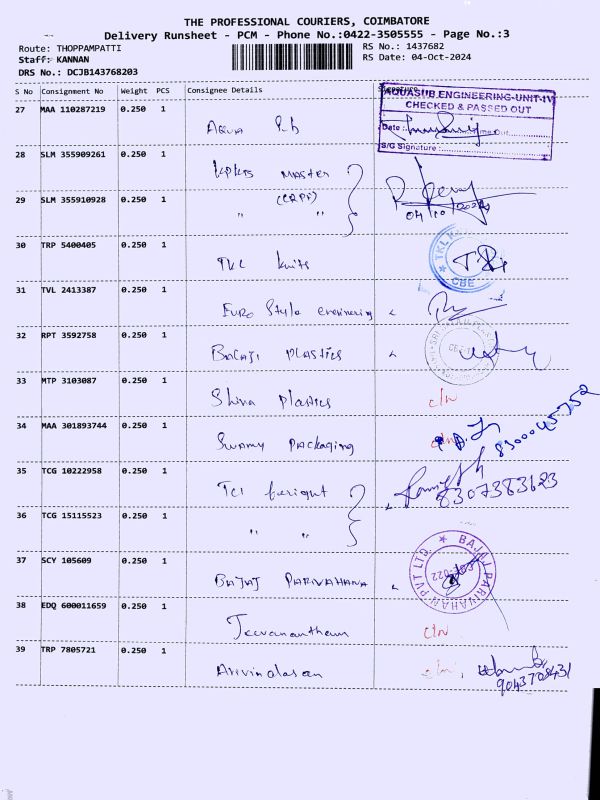 THE PROFESSIONAL COURIERS, COIMBATORE
Delivery Runsheet - PCM - Phone No.:0422-3505555 - Page No.:3
Route: THOPPAMPATTI RS No.: 1437682
Staff: KANNAN RS Date: 04-Oct-2024
DRS No.: DCJB143768203
S No Consignment No Weight PCS Consignee Details Signature
AQUASUB ENGINEERING-UNIT-IV
CHECKED & PASSED OUT
27 MAA 110287219 0.250 1
Aqua
Date :
Time Out
S/G Signature :
28 SLM 355909261 0.250 1
MASTER
29 SLM 355910928 0.250 1
(CRPF)
" "
04/10/2024
30 TRP 5400405 0.250 1
TKL Knits
TKL
CBE
31 TVL 2413387 0.250 1
Euro Style Engineering
32 RPT 3592758 0.250 1
Balaji Plastics
33 MTP 3103087 0.250 1
Shiva Plastics c/n
34 MAA 301893744 0.250 1
Swamy Packaging
35 TCG 10222958 0.250 1
TCI
8307383623
36 TCG 15115523 0.250 1
" "
37 SCY 105609 0.250 1
BAJAJ PARIVAHANA
BAJAJ PARIVAHAN PVT LTD.
38 EDQ 600011659 0.250 1
Jeevanantham c/n
39 TRP 7805721 0.250 1
c/n